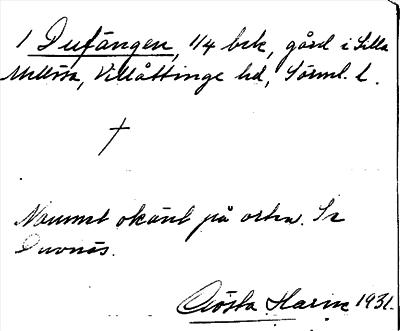 1 Dufängen, 1/4 brk, gård i Lilla
Mellösa, Villåttinge hd, Sörml. l.
Namnet okänt på orten. Se
Duvnäs.
Gösta Harin 1931.